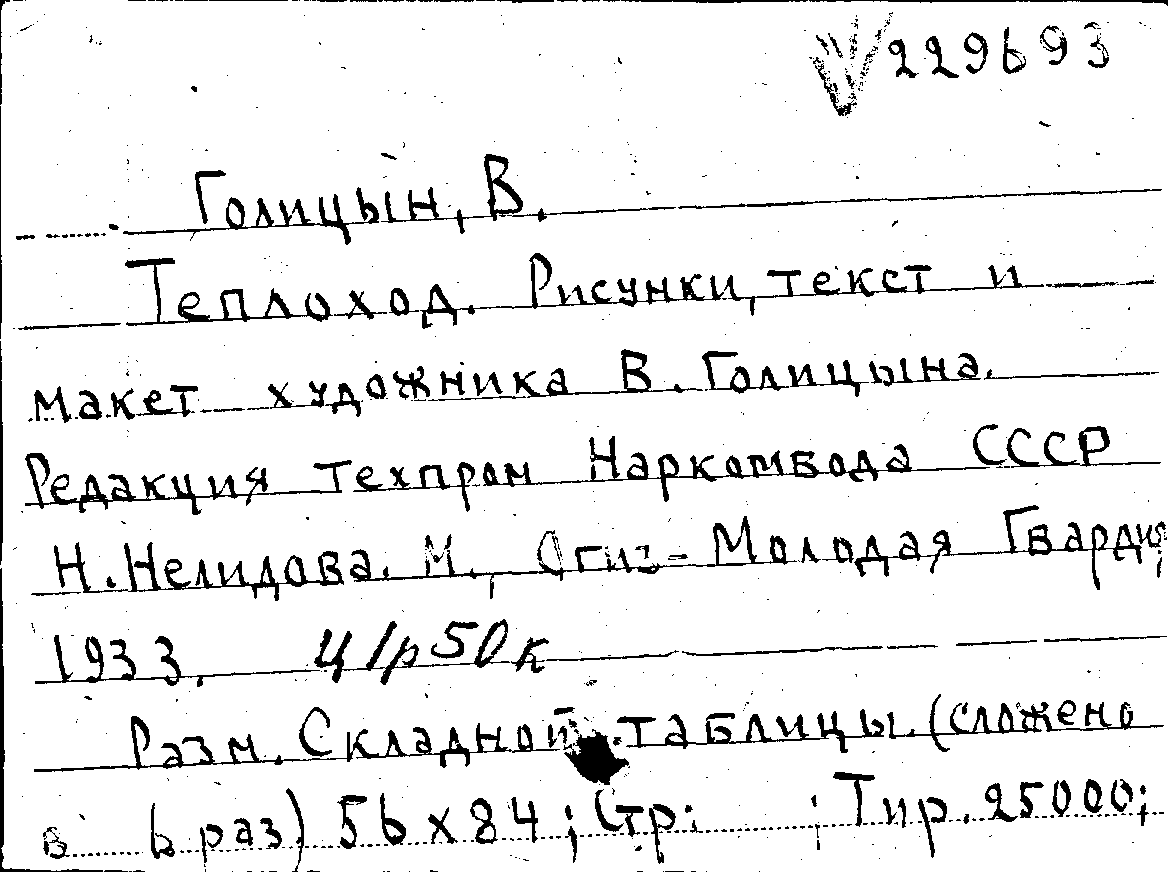 229693
Голицын, В.
Теплоход. Рисунки, текст и
макет художника В. Голицына.
Редакция техпром Наркомвода СССР
Н. Нелидова. М., Огиз-Молодая Гвардия
1933. Ц 1р 50 к
Разм. Складной таблицы (сложено
в 6 раз) 56 х 84; Стр: ; Тир. 25000;